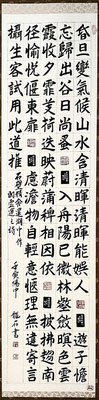 昏旦變氣候山水含清暉清暉能娛人遊子憺
忘歸出谷日尚蚤入舟陽已微林壑斂暝色雲
霞收夕霏芰荷迭映蔚蒲稗相因依披拂趨南
徑愉悅偃東扉慮澹物自輕意愜理無違寄言
攝生客試用此道推
石壁精舍還湖中作
謝靈運之詩